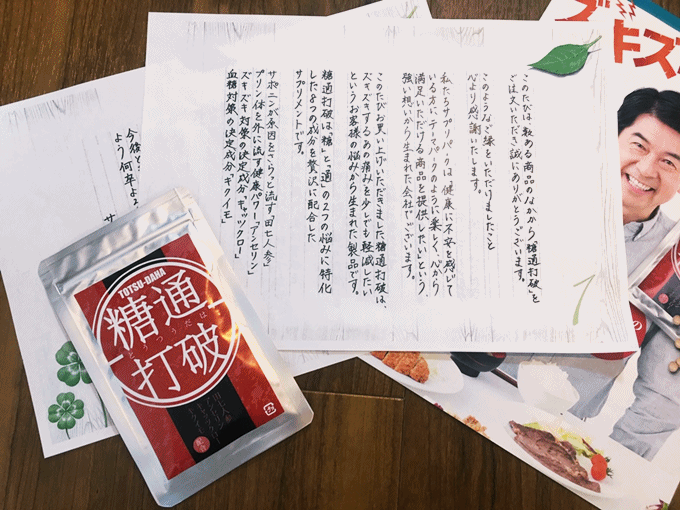 このたびは、数ある商品のなかから「糖通打破」を
ご注文いただき誠にありがとうございます。
このようなご縁をいただけましたこと
心より感謝いたします。
私たちサプリパークは、健康に不安を感じて
いる方に、テーマパークのように楽しく、心から
満足いただける商品を提供したいという、
強い想いから生まれた会社でございます。
このたびお買い上げいただきました糖通打破は、
ズキズキするあの痛みを少しでも軽減したい
というお客様の悩みから生まれた製品です。
糖通打破は「糖」と「通」の2つの悩みに特化
した8つの成分を贅沢に配合した
サプリメントです。
サポニンが原因をさらっと流す「田七人参」
プリン体を外に流す健康パワー「アンセリン」
ズキズキ対策の決定成分「キャッツクロー」
血糖対策の決定成分「キクイモ」
1
今後と
よう何卒よ
TOTSU-DAHA
糖通
とうつうだは
打破
ズキズ